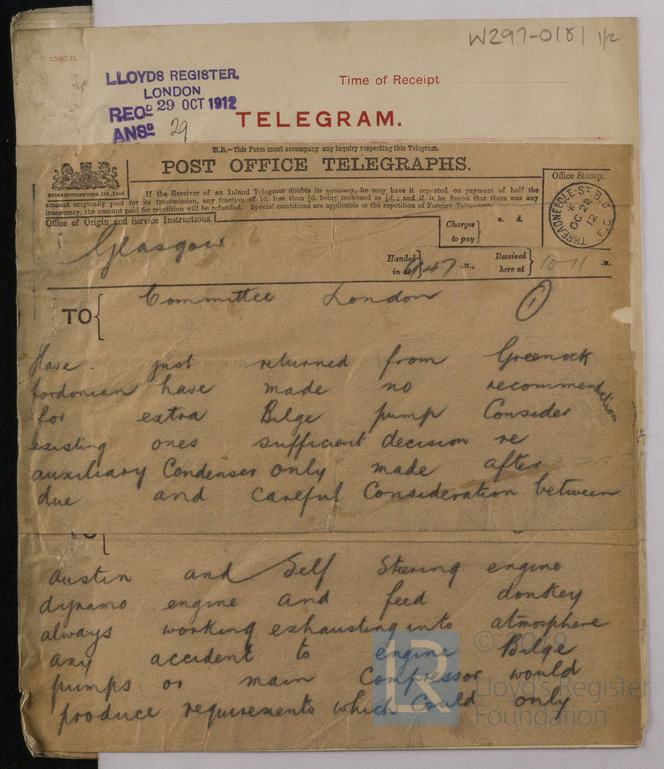 W297-0181 1/2
LLOYDS REGISTER,
LONDON
REC^D 29 OCT 1912
ANS^D 29
Time of Receipt
TELEGRAM.
N.B.—This Form must accompany any inquiry respecting this Telegram.
POST OFFICE TELEGRAPHS.
Office Stamp.
If the Receiver of an Inland Telegram doubts its accuracy, he may have it repeated on payment of half the
amount originally paid for its transmission, any fraction of 1d. less than ½d. being reckoned as ½d.; and if it be found that there was any
inaccuracy, the amount paid for repetition will be refunded. Special conditions are applicable to the repetition of Foreign Telegrams.
Office of Origin and Service Instructions.
Charges to pay
s. d.
THREADNEEDLE-ST. B.O
E.C.
OC 29
12
Glasgow
Handed in at 9.47 M.,
Received here at 10-11 .M.
TO
Committee London
1
Have just returned from Greenock
fordonian have made no recommendation
for extra Bilge pump Consider
existing ones sufficient decision re
auxiliary Condenser only made after
due and careful Consideration between
TO
austin and Self Steering engine
dynamo engine and feed donkey
always working exhausting into atmosphere
any accident to engine Bilge
pumps or main Compressor would
produce requirements which Could only
LR
© 2019
Lloyd's Register
Foundation